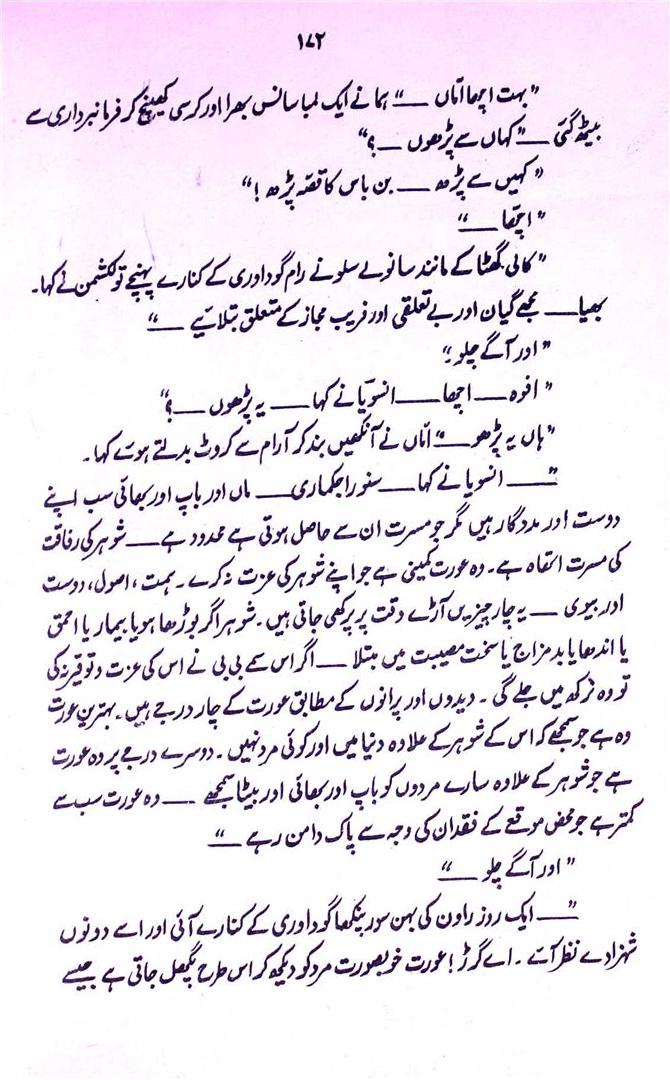 ۱۷۲
”بہت اچھا امّاں ___“ ہما نے ایک لمبا سانس بھرا اور کرسی کھینچ کر فرمانبرداری سے
بیٹھ گئی ___ ”کہاں سے پڑھوں ___ ؟“
”کہیں سے پڑھ ___ بن باس کا قصّہ پڑھ !“
”اچّھا ___“
”کالی گھٹا کے مانند سانولے سلونے رام گوداوری کے کنارے پہنچے تو لکشمن نے کہا۔
بھیا ___ مجھے گیان اور بے تعلقی اور فریب مجاز کے متعلق بتلائیے ___“
”اور آگے چلو۔“
”افوہ ___ اچھا ___ انسویّا نے کہا ___ یہ پڑھوں ___ ؟“
”ہاں یہ پڑھو ___“ امّاں نے آنکھیں بند کر آرام سے کروٹ بدلتے ہوئے کہا۔
”___ انسویا نے کہا ___ سنو راجکماری ___ ماں اور باپ اور بھائی سب اپنے
دوست اور مددگار ہیں مگر جو مسرت ان سے حاصل ہوتی ہے محدود ہے ___ شوہر کی رفاقت
کی مسرت اتھاہ ہے۔ وہ عورت کمینی ہے جو اپنے شوہر کی عزت نہ کرے۔ ہمت، اصول، دوست
اور بیوی ___ یہ چار چیزیں آڑے وقت پر پرکھی جاتی ہیں۔ شوہر اگر بوڑھا ہو یا بیمار یا احمق
یا اندھا یا بدمزاج یا سخت مصیبت میں مبتلا ___ اگر اس سمے بی بی نے اس کی عزت و توقیر نہ کی
تو وہ نرکھ میں جلے گی۔ ویدوں اور پرانوں کے مطابق عورت کے چار درجے ہیں۔ بہترین عورت
وہ ہے جو سمجھے کہ اس کے شوہر کے علاوہ دنیا میں اور کوئی مرد نہیں۔ دوسرے درجے پر وہ عورت
ہے جو شوہر کے علاوہ سارے مردوں کو باپ اور بھائی اور بیٹا سمجھے ___ وہ عورت سب سے
کمتر ہے جو محض موقع کے فقدان کی وجہ سے پاک دامن رہے ___“
”اور آگے چلو ___“
”___ ایک روز راون کی بہن سورپنکھا گوداوری کے کنارے آئی اور اسے دونوں
شہزادے نظر آئے۔ اے گرڑ ! عورت خوبصورت مرد کو دیکھ کر اس طرح پگھل جاتی ہے جیسے